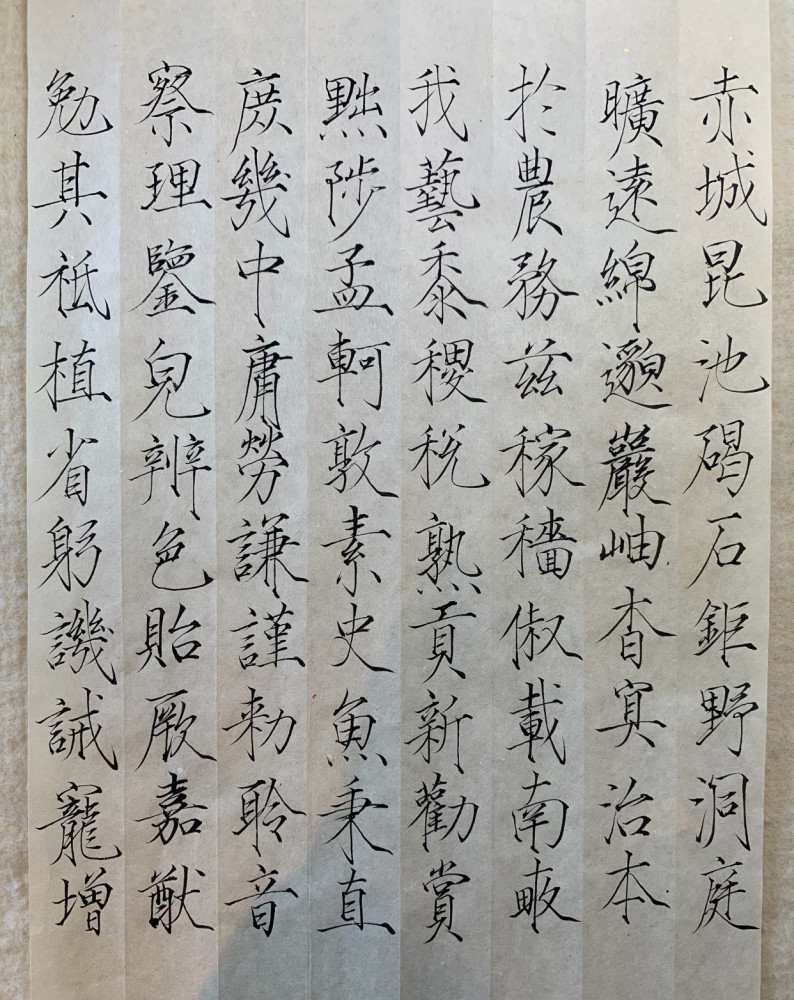 赤城昆池碣石鉅野洞庭
曠遠綿邈巖岫杳冥治本
於農務茲稼穡俶載南畝
我藝黍稷稅熟貢新勸賞
黜陟孟軻敦素史魚秉直
庶幾中庸勞謙謹勅聆音
察理鑒皃辨色貽厥嘉猷
勉其祗植省躬譏誡寵增